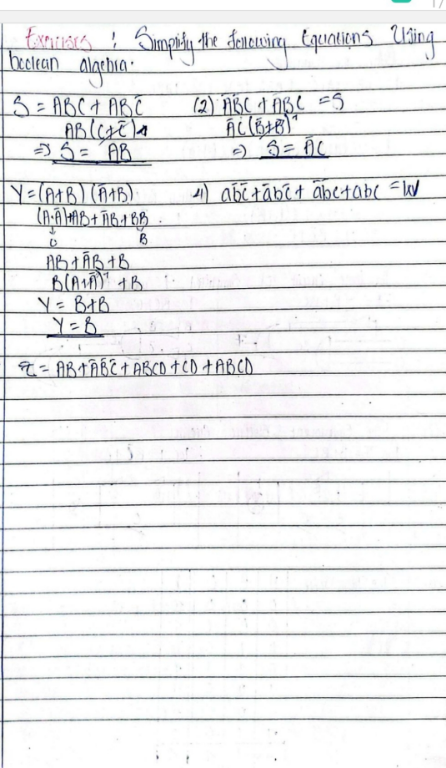 Exercises : Simplify the following Equations Using
boolean algebra.
S = ABC + ABC̄
AB(C+C̄)
=> S = AB
(2) ĀB̄C + ĀBC = S
ĀC(B̄+B)¹
=> S = ĀC
Y = (A+B)(Ā+B)
(A·Ā)+AB+ĀB+BB
0 B
AB+ĀB+B
B(A+Ā)¹ +B
Y = B+B
Y = B
4) ab̄c̄ + āb̄c̄ + āb̄c + abc = W
= AB+ĀB̄C̄+ABCD+CD+ABCD